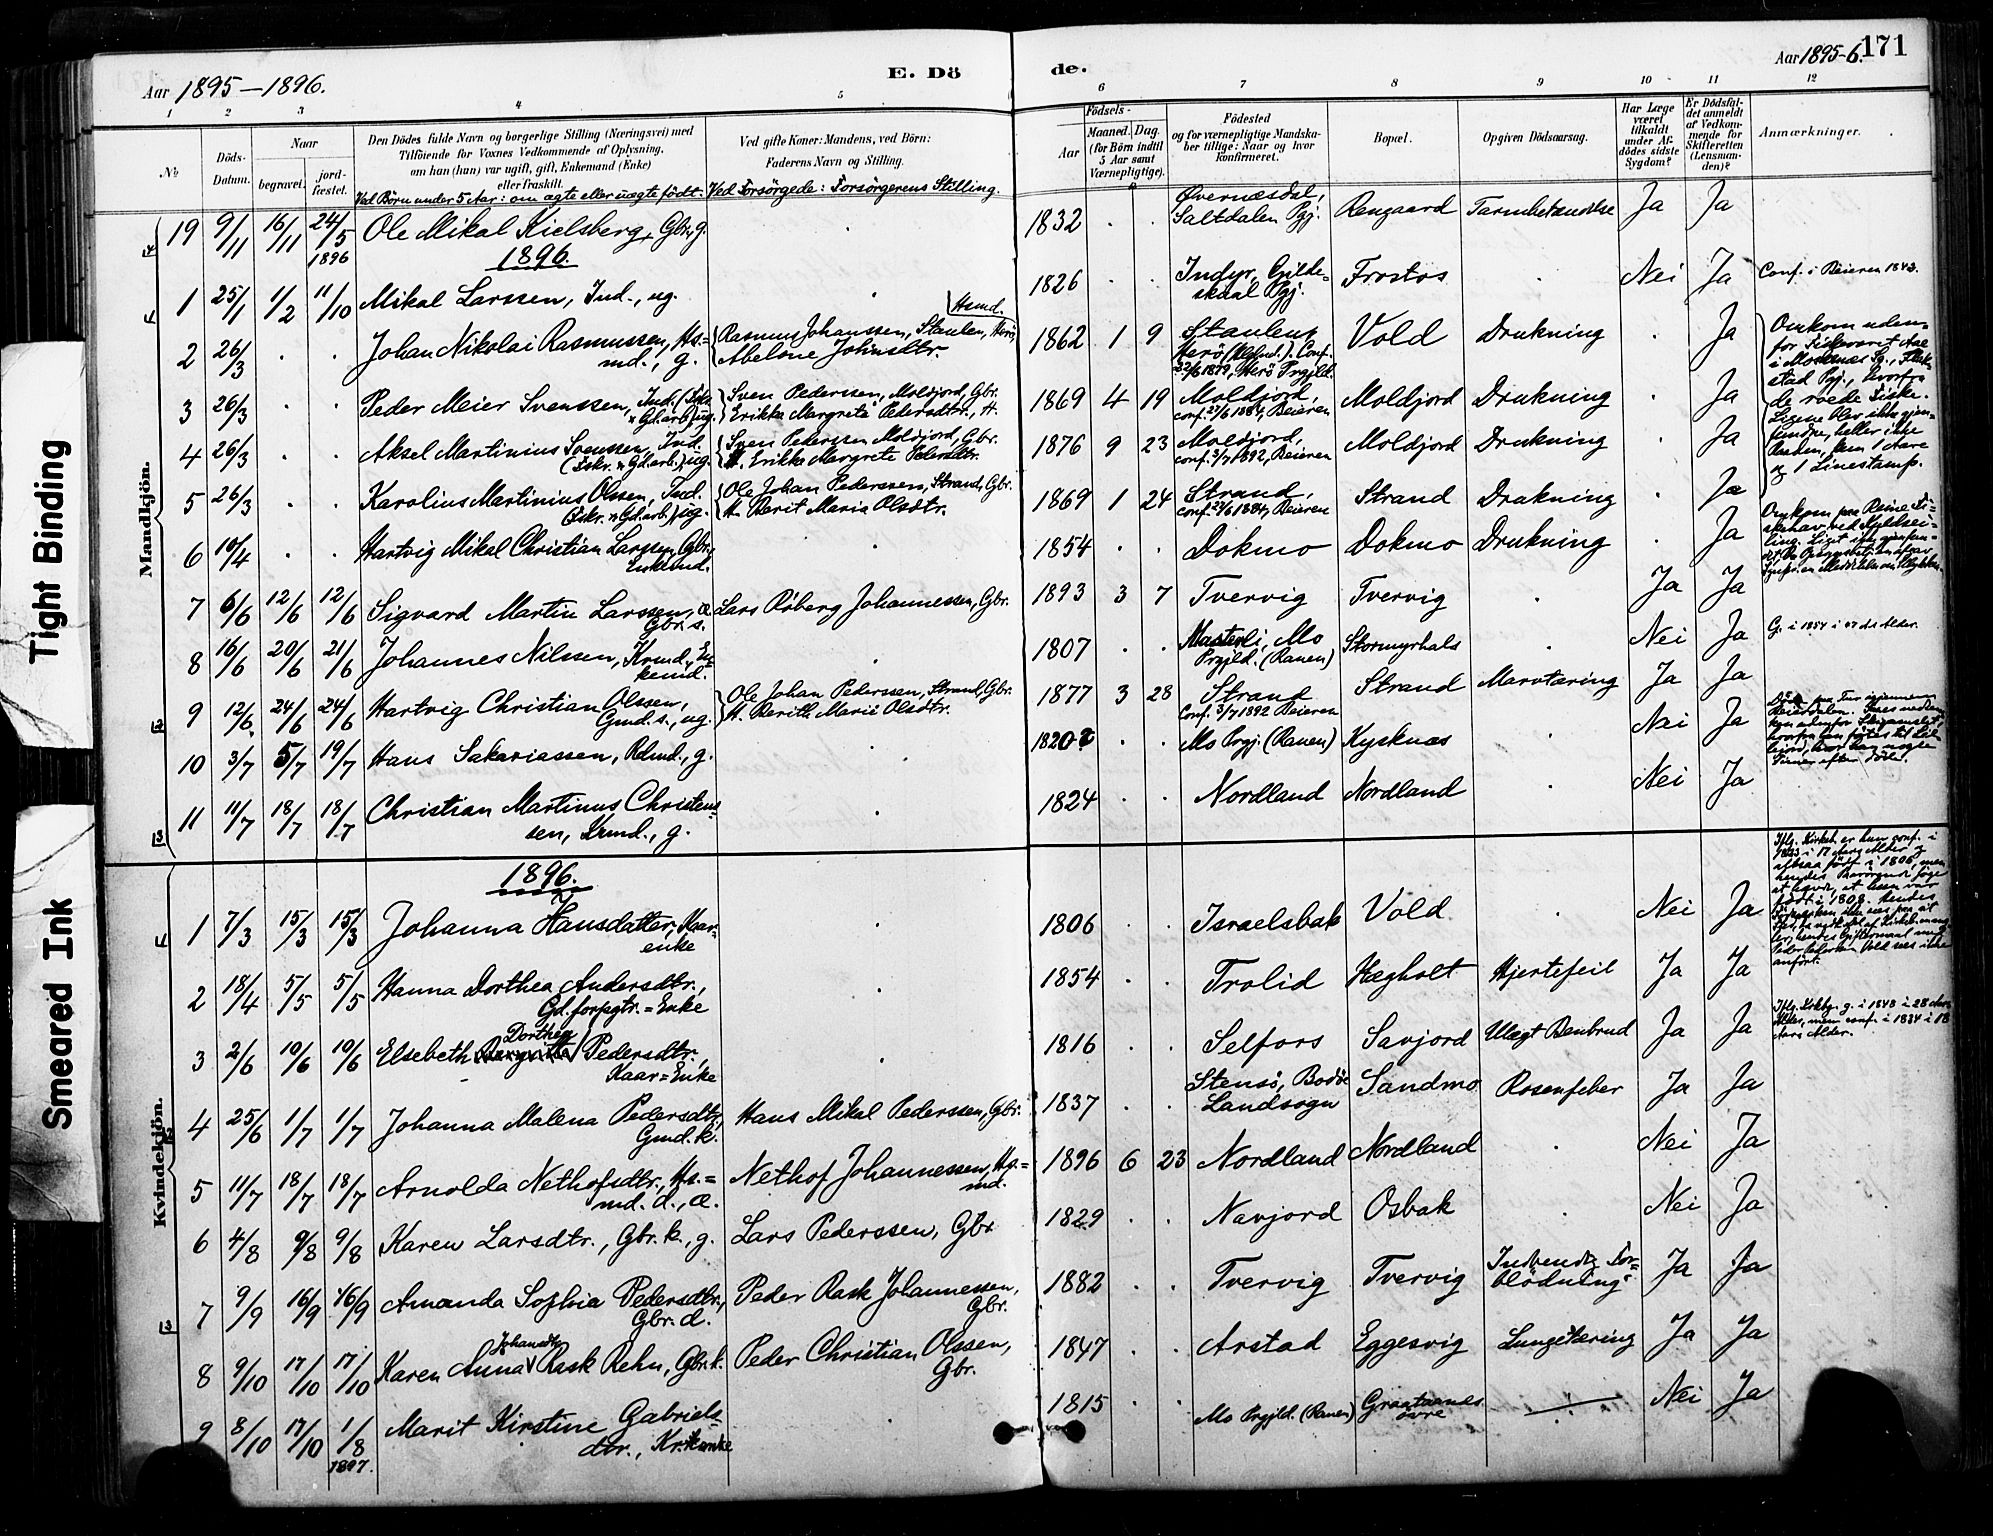 Tight Binding
Smeared Ink
Aar 1895-1896.
E. Dö
de.
Aar 1895-6.
171
1 2 3 4 5 6 7 8 9 10 11 12
№
Döds-
Datum.
Naar
begravet.
jord-
fæstet.
Den Dödes fulde Navn og borgerlige Stilling (Næringsvei) med
Tilföiende for Voxnes Vedkommende af Oplysning,
om han (hun) var ugift, gift, Enkemand (Enke)
eller fraskilt.
Ved Börn under 5 Aar: om ægte eller uægte födt.
Ved gifte Koner: Mandens, ved Börn:
Faderens Navn og Stilling.
Ved Forsörgede: Forsörgerens Stilling.
Födsels-
Aar
Maaned. Dag.
(for Börn indtil
5 Aar samt
Værnepligtige).
Födested
og for værnepligtige Mandska-
ber tillige: Naar og hvor
konfirmeret.
Bopæl.
Opgiven Dödsaarsag.
Har Læge
været
tilkaldt
under Af-
dödes sidste
Sygdom?
Er Dödsfal-
det anmeldt
af Vedkom-
mende for
Skifteretten
(Lensman-
den)?
Anmærkninger.
Mandkjön.
19 9/11 16/11 24/5 1896 Ole Mikal Kielsberg, Gbr., g. 1832 Øvernæsdal, Saltdalen Pgj. Rengaard Tarmbetændelse Ja Ja
1896.
1 25/1 1/2 11/10 Mikal Larssen, Ind., ug. 1826 Indyr, Gilde=
skaal Pgj. Frostos Nei Ja Conf. i Beieren 1843.
2 26/3 Johan Nikolai Rasmussen, Hs.=
md., g. Rasmus Johanssen, Staulen, Herö, Hsmd.
Abelone Johnsdtr. 1862 1 9 Staulen,
Herö (Helglnd.). Conf.
22/6 1879, Herö Prgjld. Vold Drukning Ja
3 26/3 Peder Meier Svenssen, Ind. (Fskr.
& Gd.arb.) ug. Sven Pederssen, Moldjord, Gbr.
Erikka Margrete Pedersdtr., H. 1869 4 19 Moldjord,
conf. 27/6 1884, Beieren Moldjord Drukning Ja
4 26/3 Aksel Martinius Svenssen, Ind.
(Fskr. & Gd.arb.) ug. Sven Pederssen Moldjord, Gbr.
H. Erikka Margrete Pedersdtr. 1876 9 23 Moldjord,
conf. 3/7 1892, Beieren Moldjord Drukning Ja
5 26/3 Karolius Martinius Olssen, Ind.
(Fskr. & Gd.arb.) ug. Ole Johan Pederssen, Strand, Gbr.
H. Berit Maria Olsdtr. 1869 1 24 Strand,
conf. 27/6 1884, Beieren Strand Drukning Ja
Omkom uden=
for Fiskeværet Aae
i Moskenes Sg., Flak=
stad Pgj., hvorfra
de roede Fiske.
Ligene blev ikke gjen=
fundne, heller ikke
Baaden, kun 1 Aare
og 1 Linestamp.
6 10/4 Hartvig Mikal Christian Larssen, Gbr.,
Enkemd. 1854 Dokmo Dokmo Drukning Ja
7 6/6 12/6 12/6 Sigvard Martin Larssen, æ.
Gbr. s. Lars Röberg Johannessen, Gbr. 1893 3 7 Tvervig Tvervig Ja Ja
8 16/6 20/6 21/6 Johannes Nilssen, Krmd., En=
kemd. 1807 Masterli, Mo
Prgjld. (Ranen) Stormyrhals Nei Ja
9 12/6 24/6 24/6 Hartvig Christian Olssen,
Gmd. s., ug. Ole Johan Pederssen, Strand, Gbr.
H. Berith Marie Olsdtr. 1877 3 28 Strand
Conf. 3/7 1892 Beieren Strand Marvtæring Ja Ja
10 3/7 5/7 19/7 Hans Sakariassen, Rdmd., g. 1820 Mo Prgj. (Ranen) Kysknæs Nei Ja
11 11/7 18/7 18/7 Christian Martinus Christens=
sen, Krmd., g. 1824 Nordland Nordland Nei Ja
Kvindekjön.
1896.
1 7/3 15/3 15/3 Johanna Hansdatter, Kaar=
enke 1806 Israelsbak Vold Nei Ja
2 18/4 5/5 5/5 Hanna Dorthea Andersdtr.,
Gd.forpgtr.=Enke 1854 Trolid Hægholt Hjertefeil Ja Ja
3 2/6 10/6 10/6 Elsebeth Dorthea Pedersdtr.,
Kaar=Enke 1816 Selfors Savjord Ulægt Benbrud Ja Ja
4 25/6 1/7 1/7 Johanna Malena Pedersdtr.,
Gmd. k. Hans Mikal Pederssen, Gbr. 1837 Stensö, Bodö
Landsogn Sandmo Rosenfeber Ja Ja
5 11/7 18/7 18/7 Arnolda Nethofsdtr., Hs.=
md. d., æ. Nethof Johannessen, Hs.=
md. 1896 6 23 Nordland Nordland Nei Ja
6 4/8 9/8 9/8 Karen Larsdtr., Gbr. k., g. Lars Pederssen, Gbr. 1829 Navjord Osbak Nei Ja
7 9/9 16/9 16/9 Amanda Sophia Pedersdtr.,
Gbr. d. Peder Rask Johannessen,
Gbr. 1882 Tvervig Tvervig Indvendig For=
blödning Ja Ja
8 9/10 17/10 17/10 Karen Anna Johansdtr. Rask Rehn, Gbr. k. Peder Christian Olssen,
Gbr. 1847 Arstad Eggesvig Lungetæring Ja Ja
9 8/10 17/10 1/8 1897. Marit Kirstine Gabriels=
dtr., 1815 Mo Prgjld. (Ranen) Graatanes
övre Nei Ja